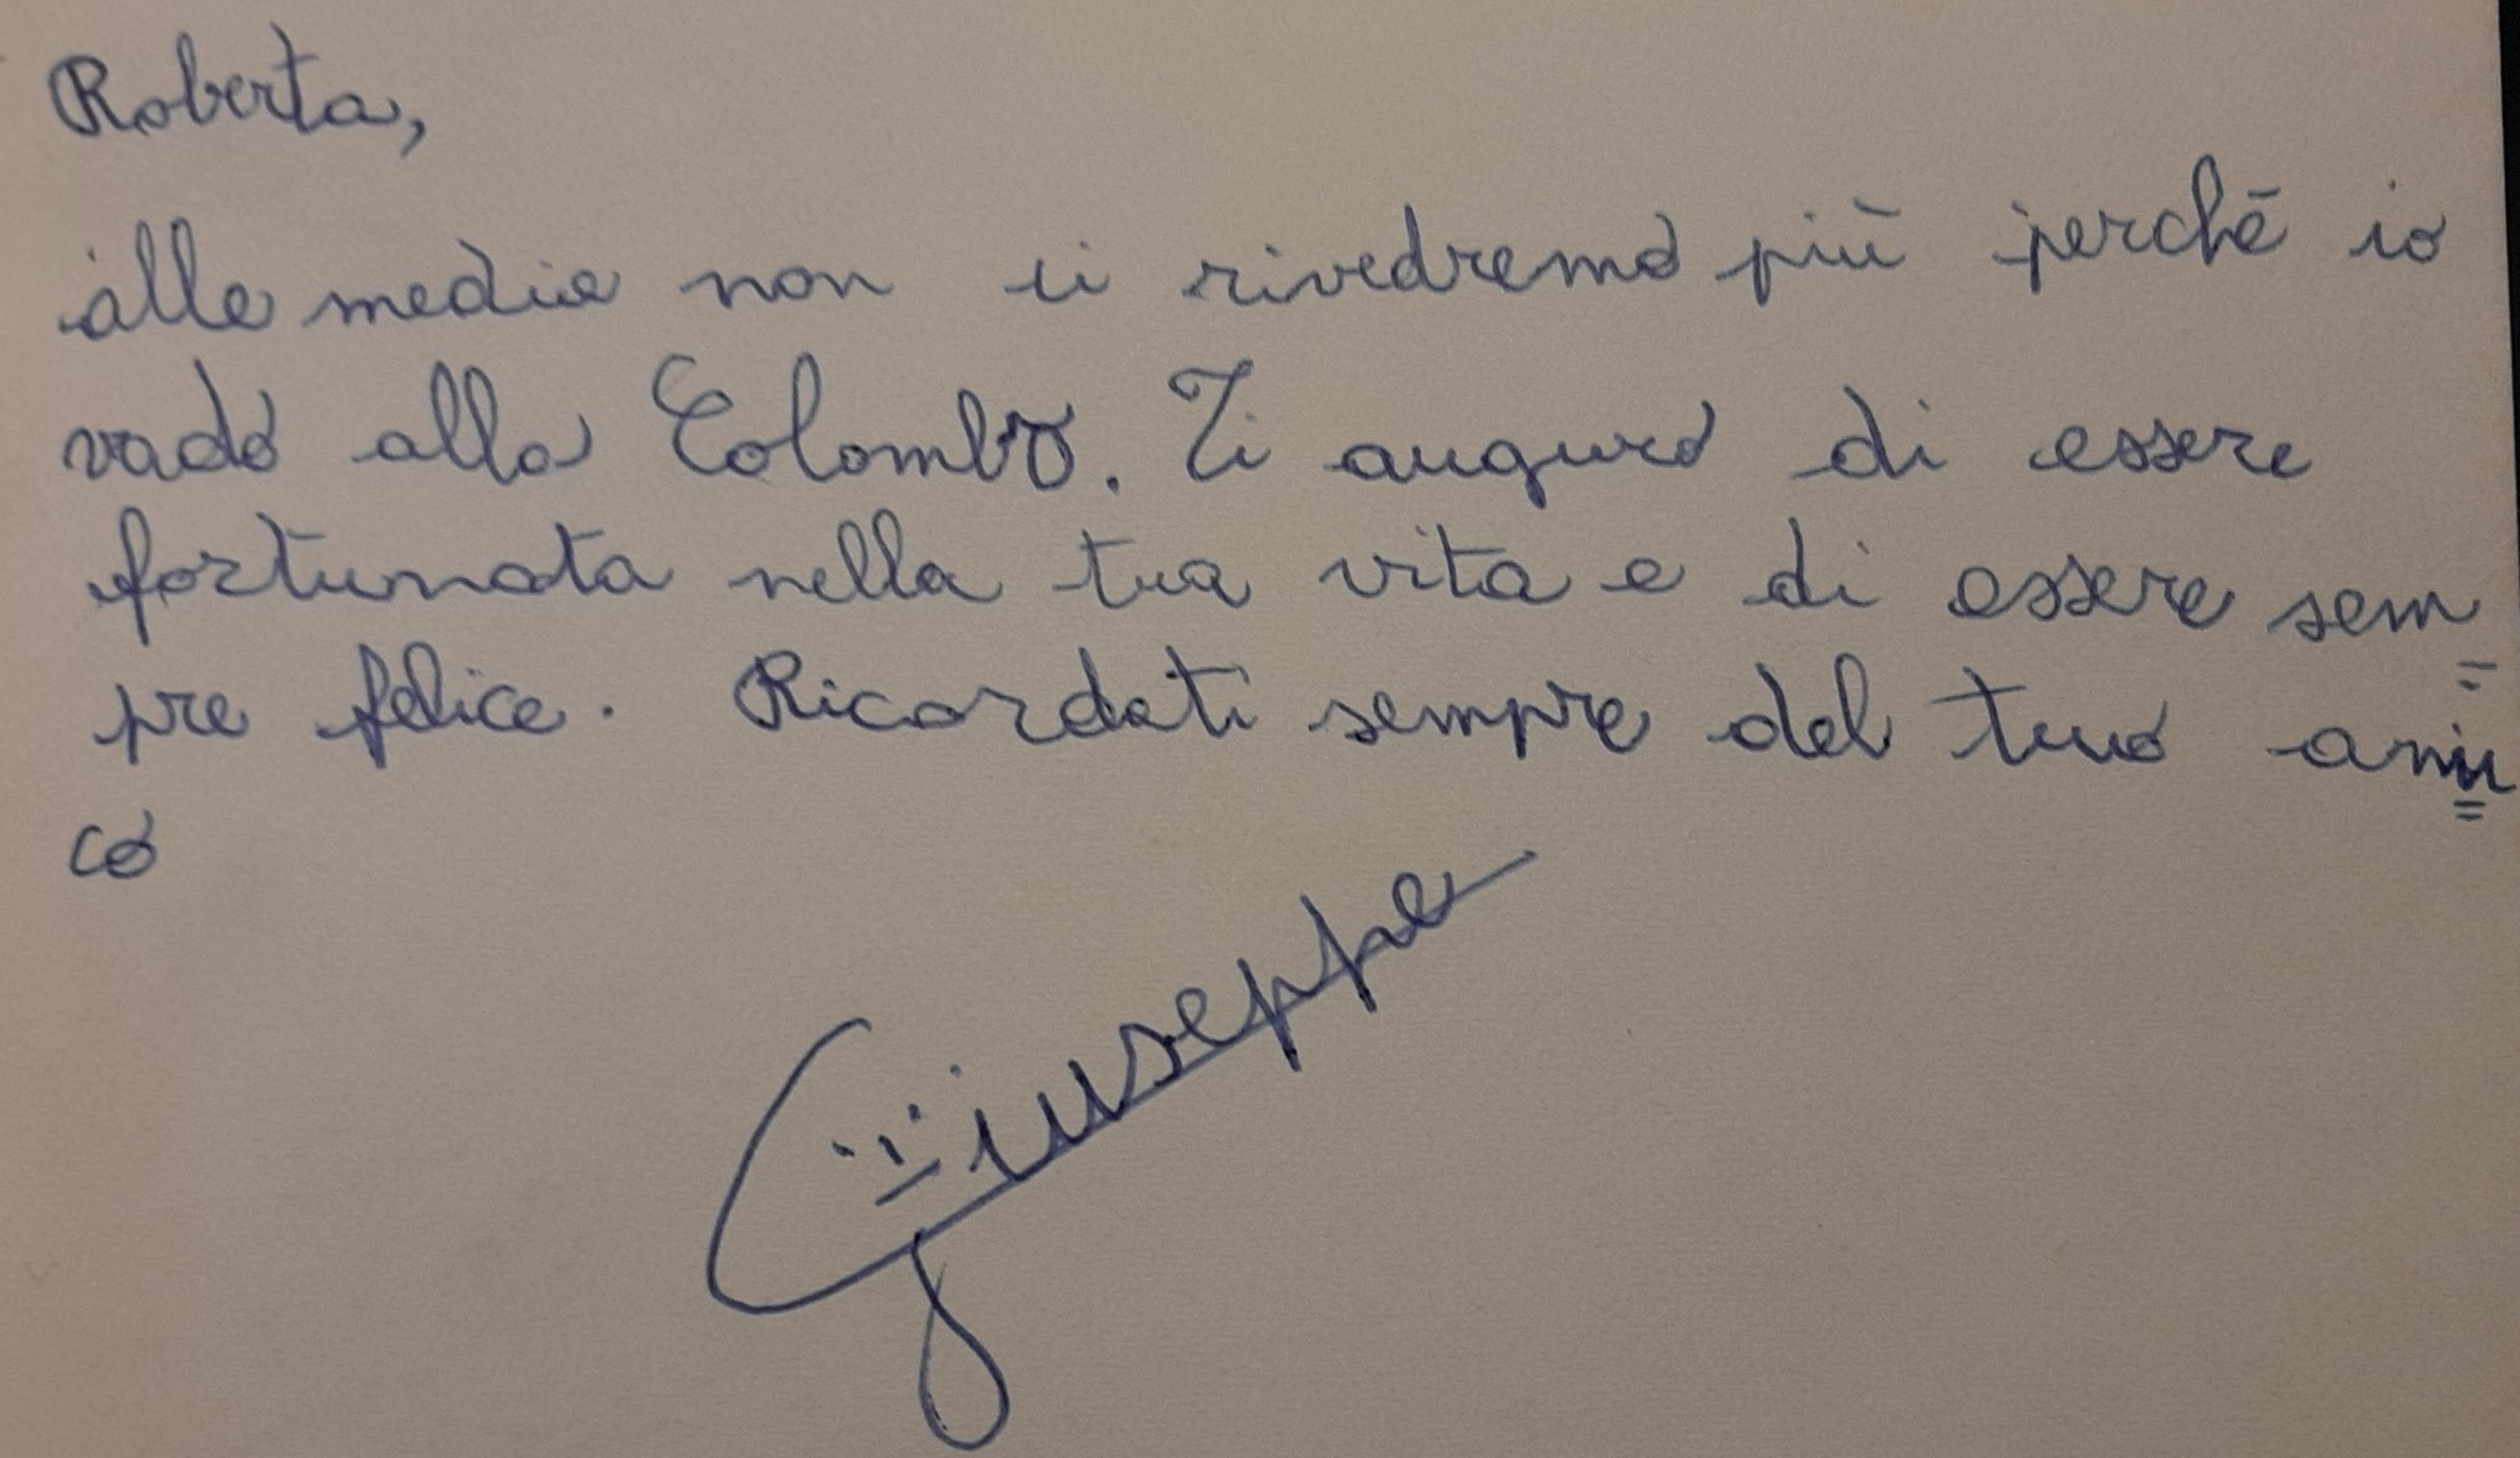 Roberta,
alle medie non ci rivedremo più perché io
vado alla Colombo. Ti auguro di essere
fortunata nella tua vita e di essere sem=
pre felice. Ricordati sempre del tuo ami=
co
Giuseppe